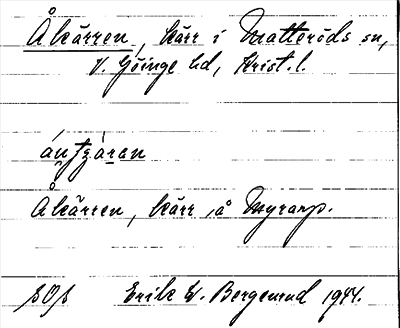 Åkärren, kärr i Matteröds sn,
V. Göinge hd, Krist. l.
Åkärren, kärr å Myrarp.
Erik W. Bergemud 1944.